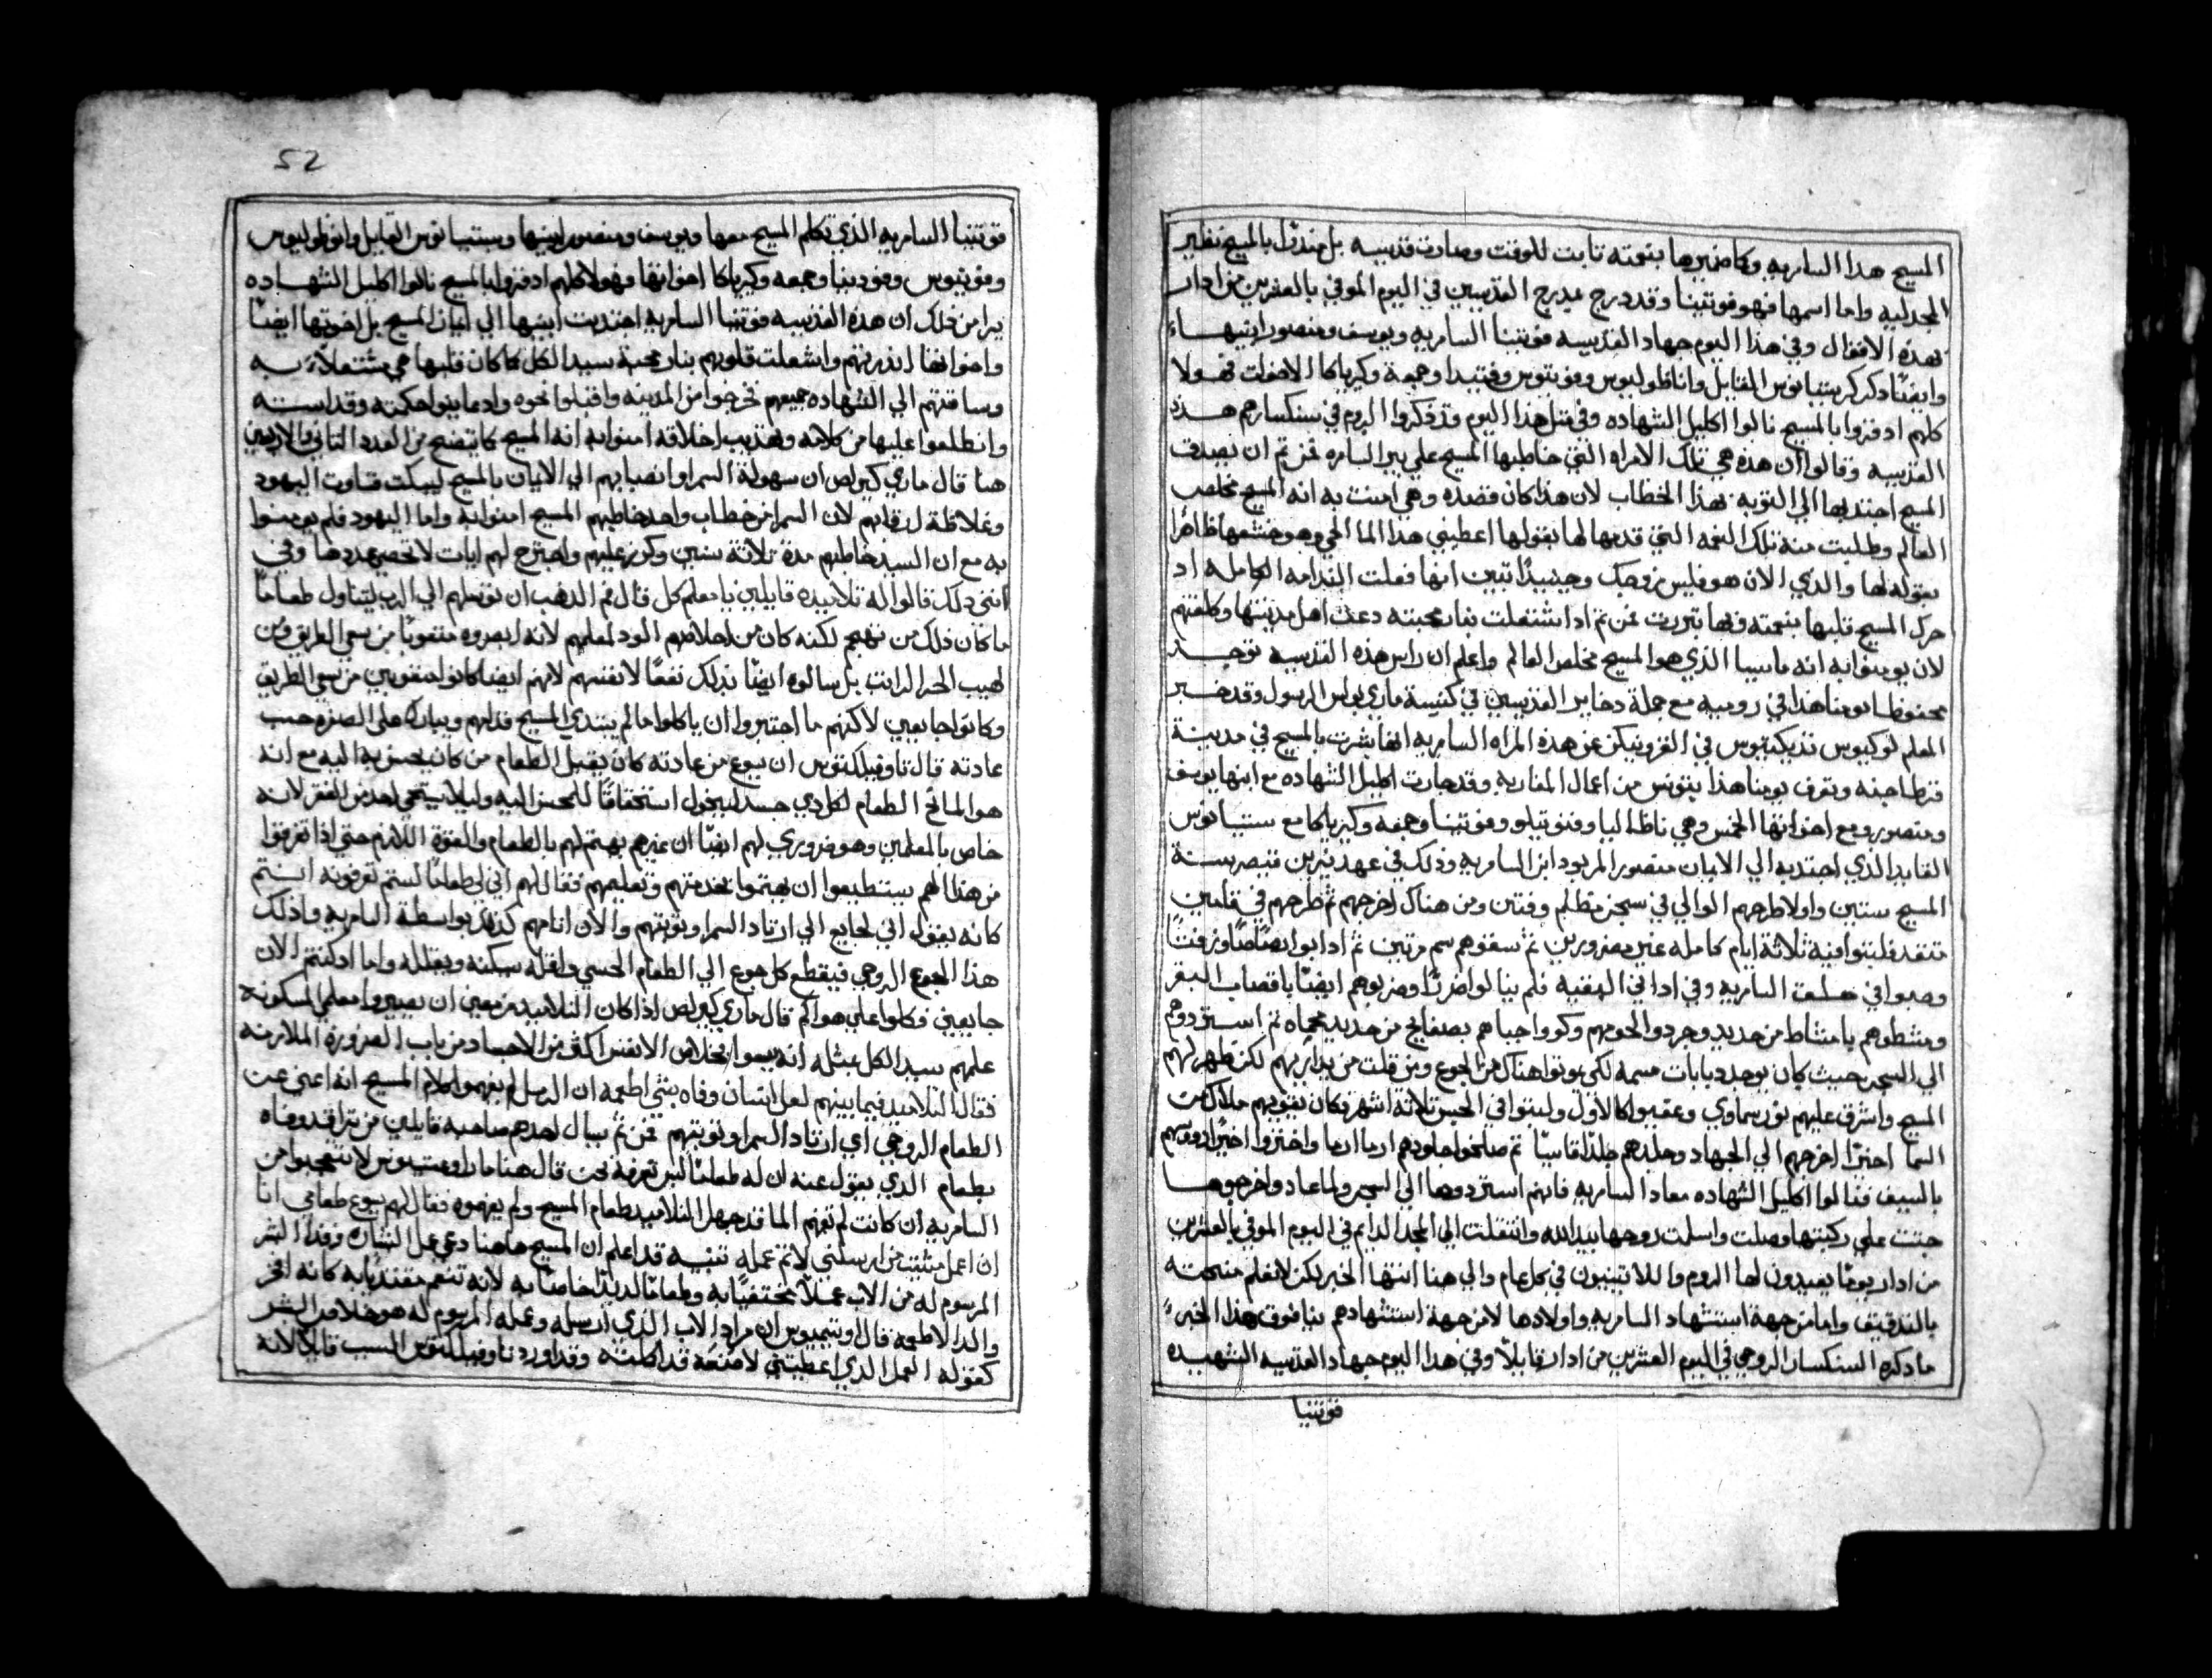 المسيح هدا السامريه وكا ضميرها بتوبته تابت للوقت وصارت قديسه بل مبدلا بالمسيح نظير
المجدليه واما اسمها فهو فوتينا وقد درج مديح القديسين في اليوم الموفي بالعشرين من ادار
بهده الاقوال وفي هدا اليوم جهاد القديسه فوتينا السامريه ويوسف ومنصور ابنيها
وايضا دكر سبتيانوس القايل واناطوليوس وفوتيوس وفوتيدا وجمعة وكيرياكا الاخوات فهولا
كلهم ادفزوا بالمسيح نالوا اكليل الشهاده وفي متل هدا اليوم قد دكروا الروم في سنكسارهم هده
القديسه وقالوا ان هده هي تلك الامراه التي خاطبها المسيح علي بير السامره فمن تم ان بصدف
المسيح اجتدبها الي التوبه بهدا الخطاب لان هدا كان قصده وهي امنت به انه المسيح مخلص
العالم وطلبت منه تلك النعمه التي قدمها لها بقولها اعطيني هدا الما الحي وهو خشمها ظاهرا
بقوله لها والدي الان هو فليس زوجك وحينيدا تبين انها فعلت الندامه الكامله اد
حرك المسيح قلبها بنعمته وبها تبررت فمن تم ادا اشتعلت بنار محبته دعت اهل مدينتها وكلفتهم
لان يومنوا به انه ماسيا الدي هو المسيح مخلص العالم واعلم ان راس هده القديسه توجد
محفوظا يومنا هدا في روميه مع جملة دخاير القديسين في كنيسة ماري بولس الرسول وقد خبر
المعلم لوكيوس تديكيتوس في القرونيكن عن هده المراه السامريه انها بشرت بالمسيح في مدينة
قرطاجنه وتعرف يومنا هدا بتونس من اعمال المغاربه وقد حازت اكليل الشهاده مع ابنها يوسف
ومنصور ومع اخواتها الخمس وهي ناطاليا وفوتيلو وفوتينا وجمعه وكيرياكا مع سبتيانوس
القايد الدي اجتدبه الي الايمان منصور المربود ابن السامريه ودلك في عهد نيرون قيصر سنة
المسيح ستين واولا طرحهم الوالي في سجن مظلم وفتين ومن هناك اخرجهم تم طرحهم في قامين
متقد فلبتوا فيه تلاتة ايام كامله غير مضرورين تم سقوهم سم مرتين تم ادابوا رصاصا وزفتا
وصبوا في حلق السامريه وفي ادان البقيه فلم ينالوا ضررا وضربوهم ايضا باقصاب البقر
ومشطوهم بامشاط من حديد وجردوا لحومهم وكووا جباهم بصفايح من حديد محماه تم استردوهم
الي السجن حيث كان يوجد دبابات مسمه لكي يموتوا هناك من الجوع ومن قلت من يداريهم لكن ظهر لهم
المسيح واشرق عليهم نور سماوي وعقبوا كالاول ولبتوا في الحبس تلاتة اشهر وكان يقويهم ملاك من
السما اخيرا اخرجهم الي الجهاد وجلدهم جلدا قاسيا تم سلخوا جلودهم اربا اربا واختزوا اخيرا روسهم
بالسيف فنالوا اكليل الشهاده معادا السامريه فانهم استردوها الي السجن ولما عاد واخرجوها
جتت علي ركبتيها وصلت واسلمت روحها بيد الله وانتقلت الي المجد الدايم في اليوم الموفي بالعشرين
من ادار يوما يعيدون لها الروم واللاتينيون في كل عام والي هنا انتها الخبر لكن لا نعلم منهجته
بالتدقيق واما من جهة استشهاد السامريه واولادها لا من جهة استشهادهم ينا فوق هدا الخبر
ما دكره السنكسار الروجي في اليوم العشرين من ادار قايلا وفي هدا اليوم جهاد القديسه الشهيده
فوتينا
52
فوتينا السامريه الدي تكلم المسيح معها ويوسف ومنصور ابنيها وسبتيانوس القايل وانوطوليوس
وفوتيوس وفوتينا وجمعه وكيرياكا اخواتها فهولا كلهم ادفزوا بالمسيح نالوا اكليل الشهاده
نيرا من دلك ان هده القديسه فوتينا السامريه اجتدبت ابنيها الي ايمان المسيح بل اخوتها ايضا
واخواتها اندرتهم واشعلت قلوبهم بنار محبة سيد الكل كما كان قلبها هي مشتعلا به
وساقتهم الي الشهاده جميعهم فخرجوا من المدينه واقبلوا نحوه وادعاينوا حكمته وقداسته
وانطلعوا عليها من كلامه وتهديب اخلاقه امنوا به انه المسيح كما يتضح من العدد التاني والاربعين
هنا قال ماري كيرلص ان سهولة السمرا وانصبابهم الي الايمان بالمسيح ليبكت قساوت اليهود
وغلاظة لرقابهم لان السمرا من خطاب واحد خاطبهم المسيح امنوا به واما اليهود فلم يومنوا
به مع ان السيد خاطبهم مدة تلاتة سنين وكرز عليهم واجترح لهم ايات لا تحصي عددها وفي
اتني دلك قالوا له تلاميده قايلين يا معلم كل قال فم الدهب ان توسلهم الي الرب ليتناول طعاما
ما كان دلك من تهجم لكنه كان من احلامهم الود لمعلمهم لانه ابصروه متعوبا من سعي الطريق ومن
لهيب الحر الزايد بل سالوه ايضا بدلك نفعا لانفسهم لانهم ايضا كانوا متعوبين من سعي الطريق
وكانوا جايعين لاكنهم ما اجتروا ان ياكلوا ما لم يبتدي المسيح قدامهم ويبارك علي السفره حسب
عادته قال تاوفيلكتوس ان يسوع من عادته كان يقبل الطعام من كان يحسن به اليه مع انه
هو المانح الطعام لكل دي جسد ليخول استحقاقا للمحسن اليه وليلا يستحي احد من الفقر لانه
خاص بالمعلمين وهو ضروري لهم ايضا ان غيرهم يهتم لهم بالطعام والقوة اللازم حتي ادا تفرقوا
من هدا الهم يستطيعوا ان يهتموا بخدمتهم وتعليمهم فقال لهم اني لي طعاما لستم تعرفونه انتم
كانه بقوله اني لجايع الي ارتاد السمرا وتوبتهم والان انامهم كدهم بواسطة السامريه وادلك
هدا الجوع الروحي فيقطع كل جوع الي الطعام الحسي واقله يسكنه ويقلله واما ادكنتم الان
جايعين فكلوا علي هواكم قال ماري كيرلص ادا كان التلاميد مزمعين ان يصيروا معلمي المسكونه
علمهم سيد الكل بمتله انه يهتموا بخلاص الانفس اكتر من الاجساد من باب الضرورة الملازمه
فقال التلاميد فيما بينهم لعل انسان وفاه بشي اطعمه ان الرسل لم يفهموا كلام المسيح انه اعني عن
الطعام الروحي اي ارتاد السمرا وتوبتهم فمن تم يسال احدهم صاحبه قايلين من ترا قد وفاه
بطعام الدي يقول عنه ان له طعاما ليس تعرفه نحن قال هنا ماراوغسطينوس لا تتعجبوا من
السامريه ان كانت لم تفهم الما قد جهل التلاميد طعام المسيح ولم يفهموه فقال لهم يسوع طعامي انا
ان اعمل مشيت من ارسلني لاتم عمله تنبيه قد اعلم ان المسيح هاهنا دعي عمل البشاره وفدا البشر
المرسوم له من الاب عملا مختصا به وطعاما لديدا خاصا به لانه تنعم مقتديا به كانه افخر
والد الاطعمه قال اوتيميوس ان مراد الاب الدي ارسله وعمله المرسوم له هو خلاص البشر
كقوله العمل الدي اعطيتني لاصنعه قد اكملته وقد اورد تاوفيلكتوس السبب قايلا لانه